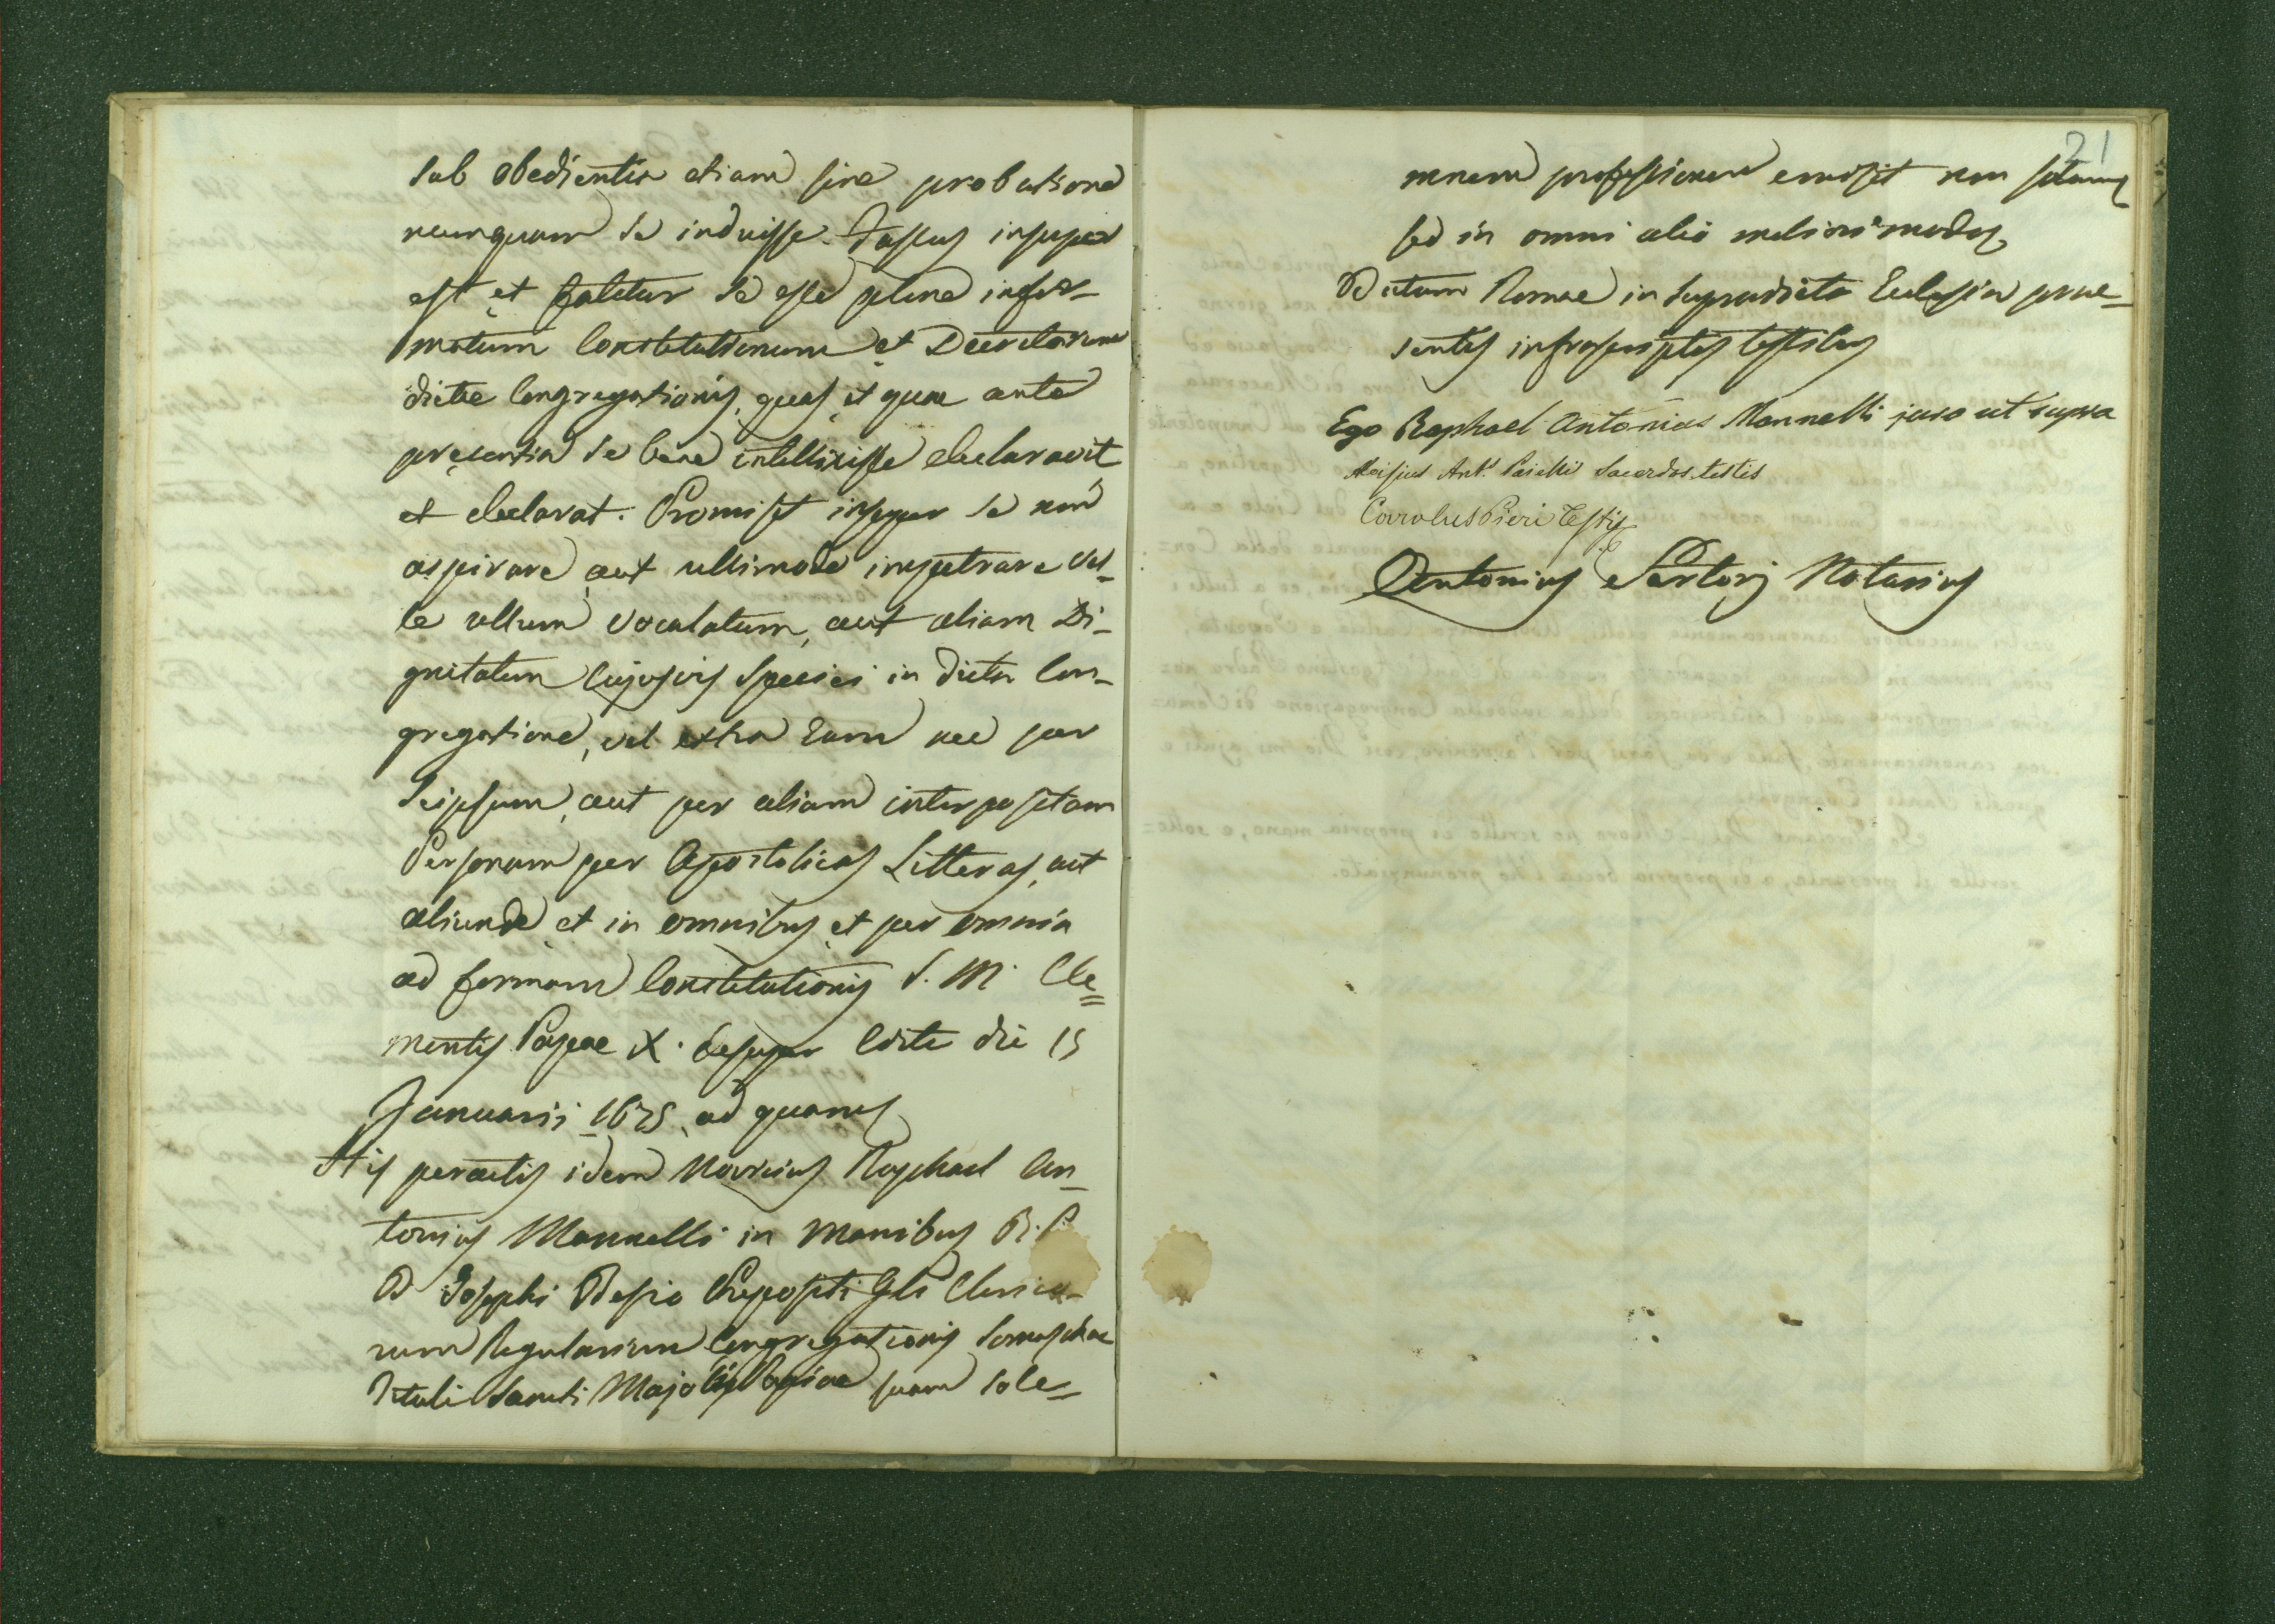 sub obedientia etiam sine probatione
nunquam se induisse. Fassus insuper
est et fatetur se esse plene infor-
matum Constitutionum et Decretorum
dictae Congregationis, quas et quae ante
presentia se bene intellixisse declaravit
et declarat. Promisit insuper se non
aspirare, aut ullimode impetrare vel-
le ullum vocalatum, aut aliam Di-
gnitatem cujusvis speciei in dicta Con-
gregatione, vel extra Eam nec per
seipsum, aut per aliam interpositam
Personam per Apostolicas Litteras, aut
aliunde et in omnibus et per omnia
ad formam Constitutionis S. M. Cle=
mentis Papae X. desuper Edite die 15
Januarii 1675, ad quam
His peractis idem Novicius Raphael An-
tonius Mannelli in manibus R. P.
D Josephi Besio Prepositi Glis Clerico-
rum Regularium Congregationis Somaschae
Tituli Sancti Majoli Papiae suam sole=
21
mnem professionem emisit non solum
sed in omni alio meliori modo
Datum Romae in supradicta Ecclesia prae-
sentes infrascriptis testibus
Ego Raphael Antonius Mannelli juro ut supra
Aloisius Ant. Parelli Sacerdos testis
Carolus Pieri Testis
Antonius Sartorj Notarius